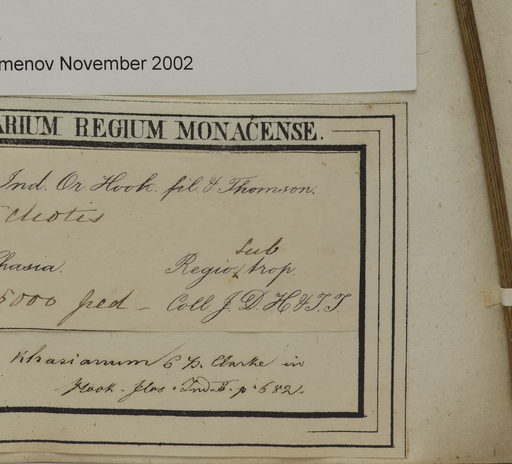 menov November 2002
ARIUM REGIUM MONACENSE.
Ind. Or. Hook. fil. & Thomson.
chotis
hasia. Regio sub trop
5000 ped — Coll. J. D. H. & T. T.
Khasianum C B. Clarke in
Hook. flor. Ind. p. 682.